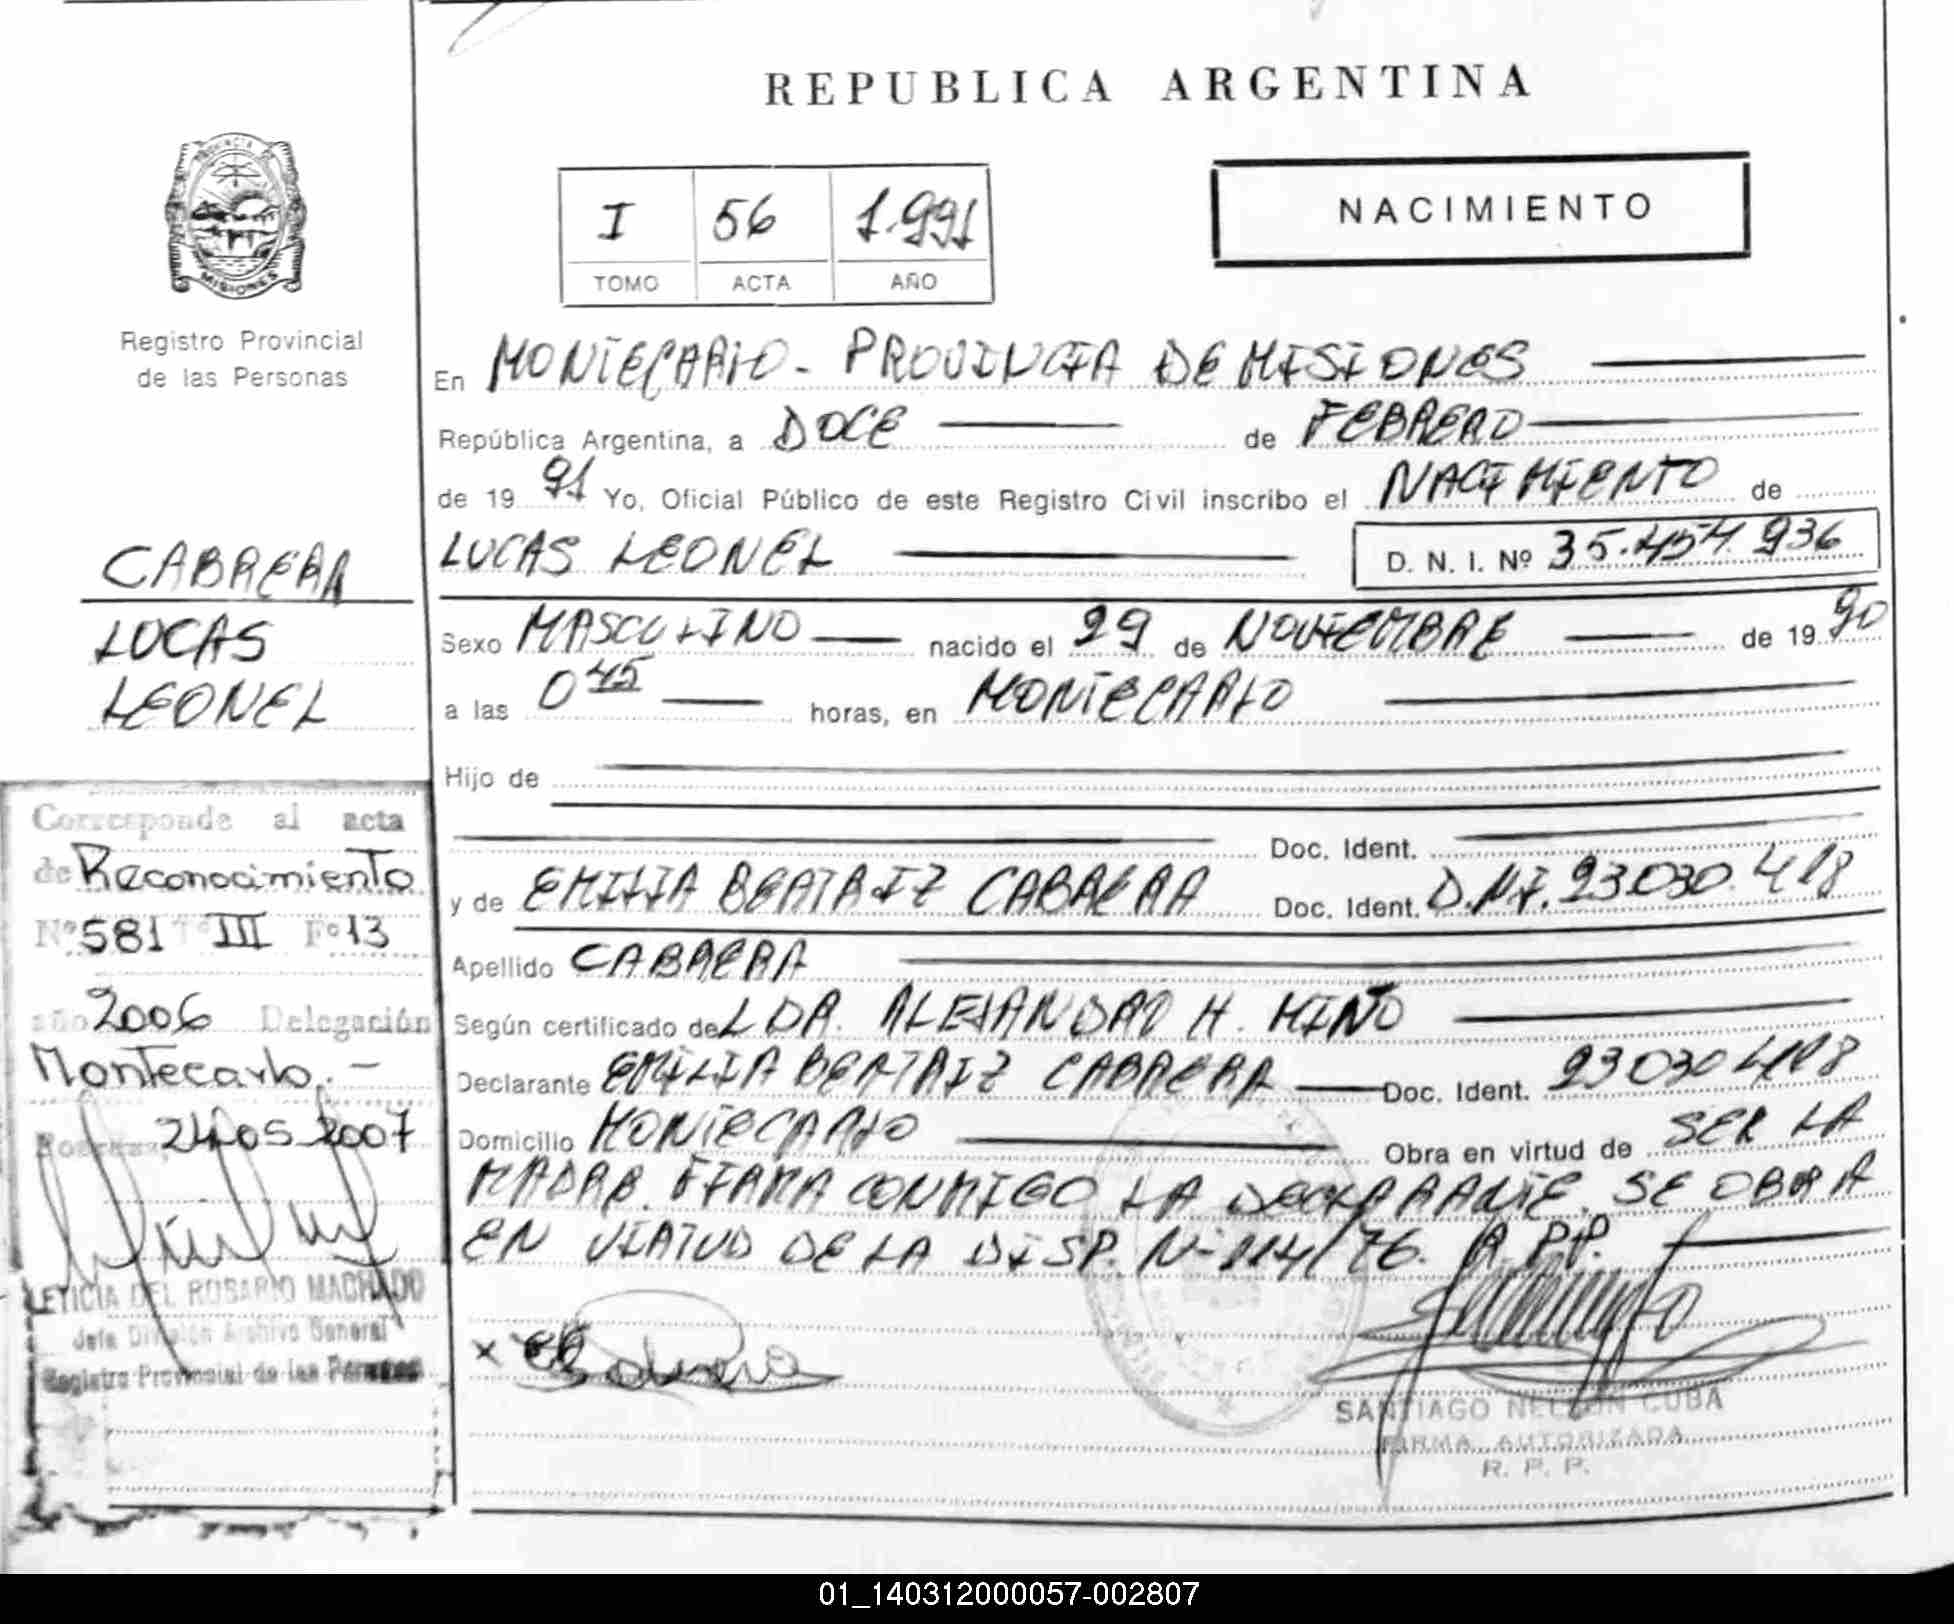 REPUBLICA ARGENTINA
NACIMIENTO
I 56 1.991
TOMO ACTA AÑO
PROVINCIA DE
MISIONES
Registro Provincial
de las Personas
CABRERA
LUCAS
LEONEL
En MONTECARLO - PROVINCIA DE MISIONES
República Argentina, a DOCE de FEBRERO
de 19 91 Yo, Oficial Público de este Registro Civil inscribo el NACIMIENTO de
LUCAS LEONEL D. N. I. Nº 35.454.936
Sexo MASCULINO nacido el 29 de NOVIEMBRE de 19 90
a las 0 45 horas, en MONTECARLO
Hijo de
Doc. Ident.
y de EMILIA BEATRIZ CABRERA Doc. Ident. D.N.I. 23.030.418
Apellido CABRERA
Según certificado de LDA. ALEJANDRO H. MIÑO
Declarante EMILIA BEATRIZ CABRERA Doc. Ident. 23030418
Domicilio MONTECARLO Obra en virtud de SER LA
MADRE. FIRMA CONMIGO LA DECLARANTE. SE OBRA
EN VIRTUD DE LA DISP. Nº 114/76. R.P.P.
SANTIAGO NELSON CUBA
FIRMA AUTORIZADA
R. P. P.
Corresponde al acta
de Reconocimiento
Nº 581 Tº III Fº 13
año 2006 Delegación
Montecarlo.-
24 05 2007
LETICIA DEL ROSARIO MACHADO
Jefe División Archivo General
Registro Provincial de las Personas
01_140312000057-002807